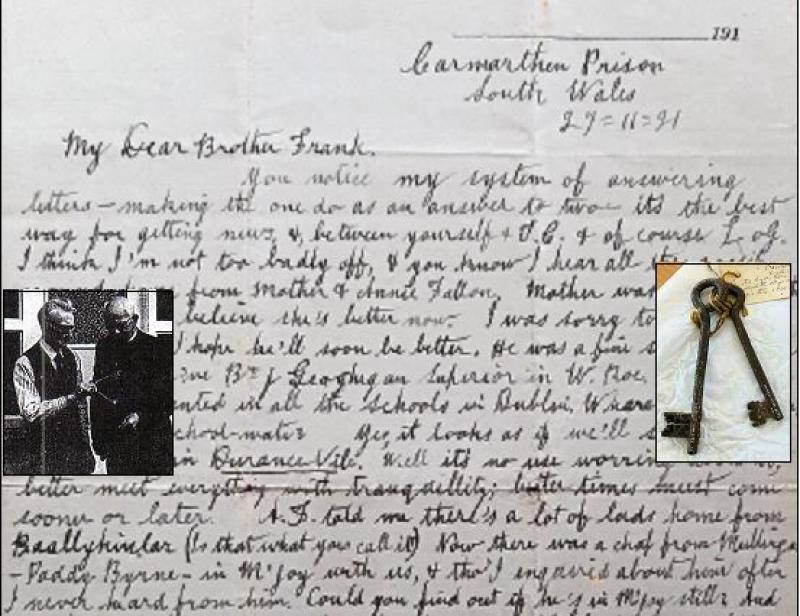 191
Carmarthen Prison
South Wales
27=11=21
My Dear Brother Frank.
You notice my system of answering
letters — making the one do as an answer to two — its the best
way for getting news, &, between yourself & J.C. & of course L. og.
I think I'm not too badly off, & you know I hear all the
from Mother & Annie Fallon. Mother was
believe she's better now. I was sorry to
I hope he'll soon be better. He was a fine
Br J Geoghegan Superior in W. Roc.
in all the schools in Dublin. Where
school-mate Yes, it looks as if we'll
in Durance Vile. Well it's no use worrying
better meet everything with tranquillity; better times must come
sooner or later. A.F. told me there's a lot of lads home from
Baallykinlar (Is that what you call it) Now there was a chap from Mullinga
- Paddy Byrne - in M'joy with us, & tho' I inquired about him often
I never heard from him. Could you find out if he's in M'joy still? And